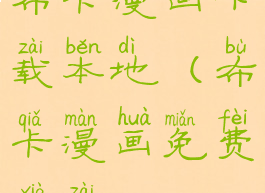 布卡漫画下
zài běn dì bù
载本地(布
qiǎ màn huà miǎn fèi
卡漫画免费
xià zài